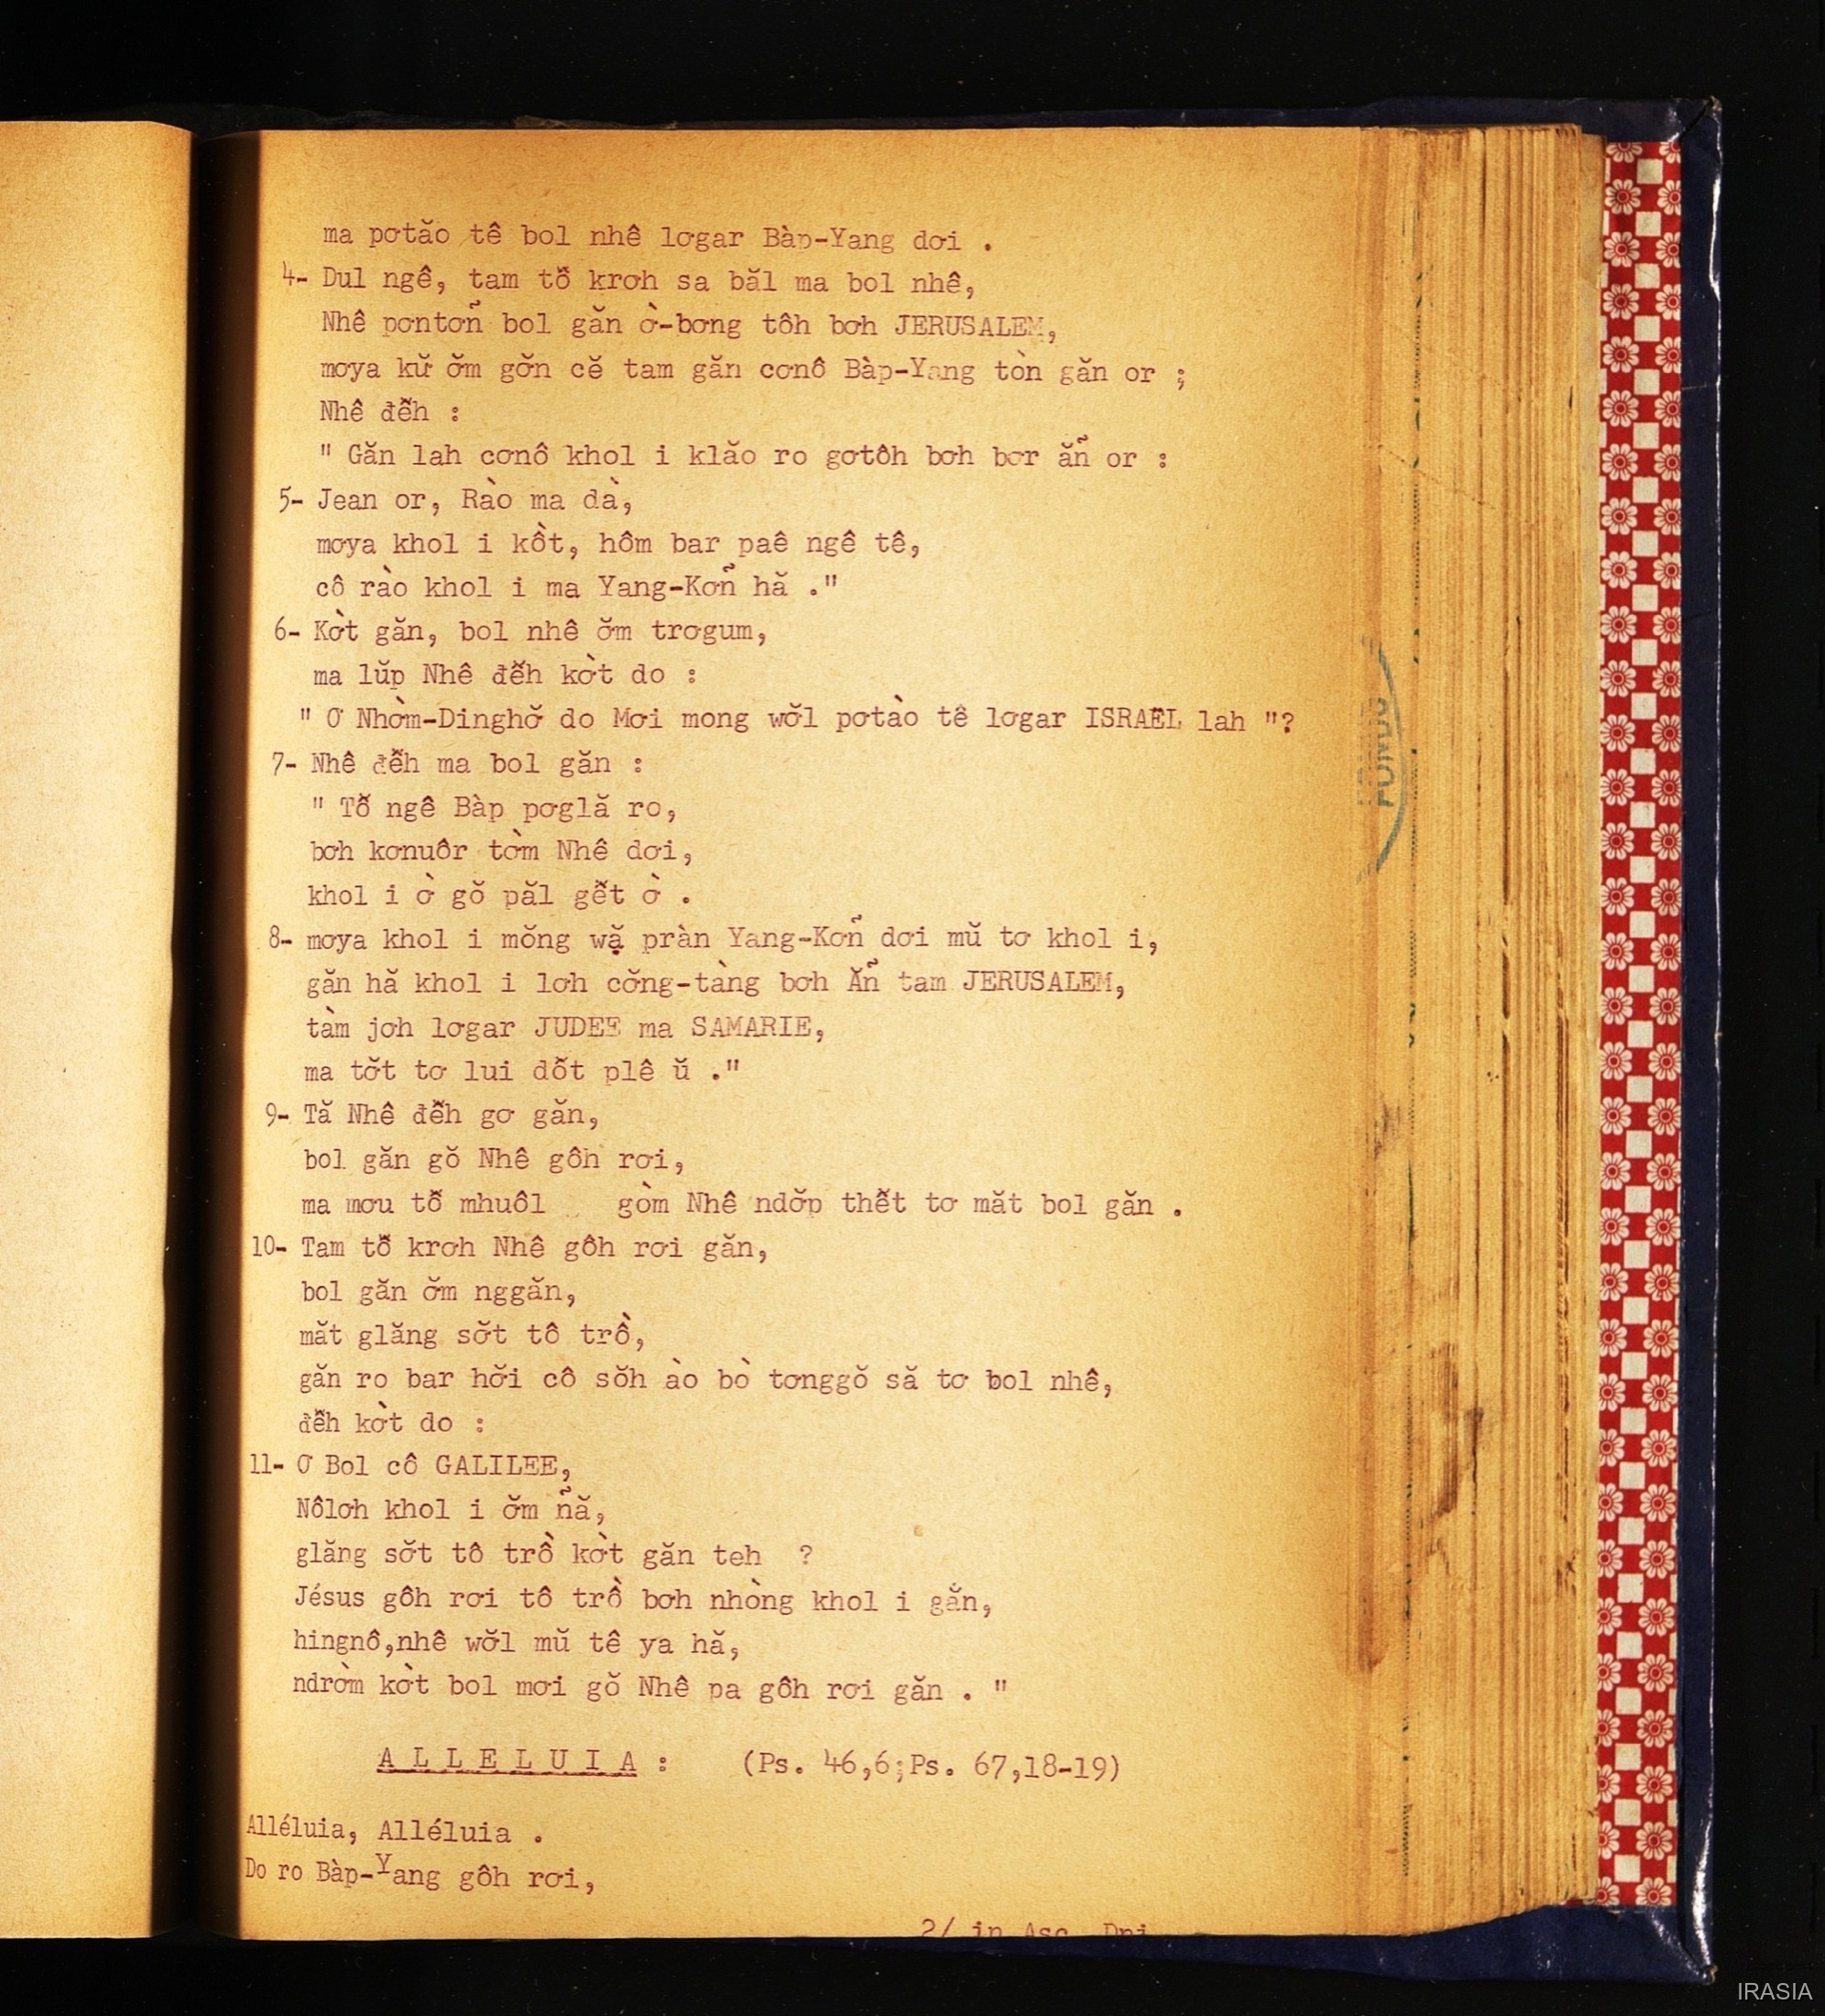 ma pơtăo tê bol nhê lơgar Bàp-Yang dơi .
4- Dul ngê, tam tô̆ krơh sa băl ma bol nhê,
Nhê pơntơn̉ bol găn ờ-bơng tôh bơh JERUSALEM,
mơya kŭ ơ̆m gơ̆n cĕ tam găn cơnô Bàp-Yang tòn găn or ;
Nhê đê̆h :
" Găn lah cơnô khol i klăo ro gơtôh bơh bơr ăn̉ or :
5- Jean or, Rào ma dà,
mơya khol i kồt, hôm bar paê ngê tê,
cô rào khol i ma Yang-Kơn̉ hă ."
6- Kờt găn, bol nhê ơ̆m trơgum,
ma lŭp Nhê đê̆h kờt do :
" Ơ Nhờm-Dinghơ̆ do Mơi mong wơ̆l pơtào tê lơgar ISRAËL lah "?
7- Nhê đê̆h ma bol găn :
" Tô̆ ngê Bàp pơglă ro,
bơh kơnuôr tờm Nhê dơi,
khol i ờ gŏ păl gê̆t ờ .
8- mơya khol i mŏng wặ pràn Yang-Kơn̉ dơi mŭ tơ khol i,
găn hă khol i lơh cơ̆ng-tàng bơh Ăn̉ tam JERUSALEM,
tàm jơh lơgar JUDEE ma SAMARIE,
ma tơ̆t tơ lui dô̆t plê ŭ ."
9- Tă Nhê đê̆h gơ găn,
bol găn gŏ Nhê gôh rơi,
ma mơu tô̆ mhuôl gòm Nhê ndơ̆p thê̆t tơ măt bol găn .
10- Tam tô̆ krơh Nhê gôh rơi găn,
bol găn ơ̆m nggăn,
măt glăng sơ̆t tô trồ,
găn ro bar hơ̆i cô sŏh ào bò tơnggŏ să tơ bol nhê,
đê̆h kờt do :
11- Ơ Bol cô GALILEE,
Nôlơh khol i ơ̆m n̉ă,
glăng sơ̆t tô trồ kờt găn teh ?
Jésus gôh rơi tô trồ bơh nhòng khol i găn,
hingnô,nhê wơ̆l mŭ tê ya hă,
ndrờm kờt bol mơi gŏ Nhê pa gôh rơi găn . "
A L L E L U I A : (Ps. 46,6;Ps. 67,18-19)
Alléluia, Alléluia .
Do ro Bàp-Yang gôh rơi,
2/ in Asc. Dni
IRASIA